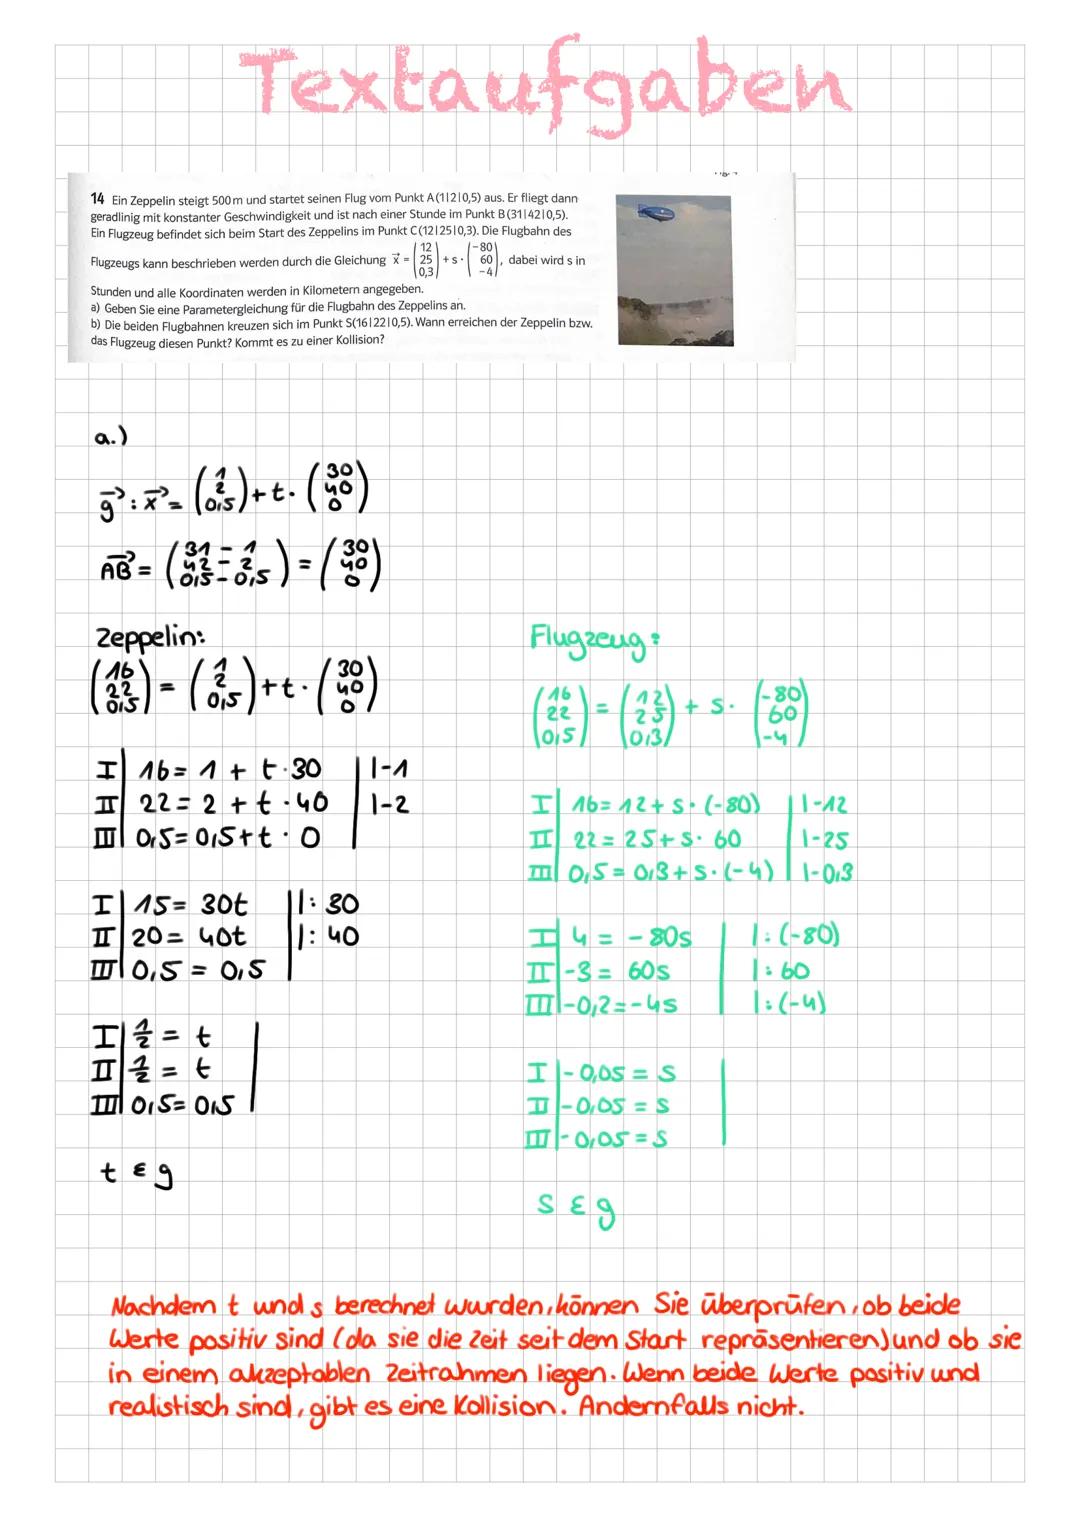 Textaufgaben
14 Ein Zeppelin steigt 500m und startet seinen Flug vom Punkt A(1|2|0,5) aus. Er fliegt dann
geradlinig mit konstanter Geschwindigkeit und ist nach einer Stunde im Punkt B(31|42|0,5).
Ein Flugzeug befindet sich beim Start des Zeppelins im Punkt C(12|25|0,3). Die Flugbahn des
Flugzeugs kann beschrieben werden durch die Gleichung x⃗ = (12 25 0,3) + s · (-80 60 -4), dabei wird s in
Stunden und alle Koordinaten werden in Kilometern angegeben.
a) Geben Sie eine Parametergleichung für die Flugbahn des Zeppelins an.
b) Die beiden Flugbahnen kreuzen sich im Punkt S(16|22|0,5). Wann erreichen der Zeppelin bzw.
das Flugzeug diesen Punkt? Kommt es zu einer Kollision?
a.)
g⃗: x⃗ = (1 2 0,5) + t · (30 40 0)
AB⃗ = (31 - 1 42 - 2 0,5 - 0,5) = (30 40 0)
Zeppelin:
(16 22 0,5) = (1 2 0,5) + t · (30 40 0)
I | 16 = 1 + t · 30 | |-1
II | 22 = 2 + t · 40 | |-2
III | 0,5 = 0,5 + t · 0 |
I | 15 = 30t | |: 30
II | 20 = 40t | |: 40
III | 0,5 = 0,5 |
I | 1/2 = t |
II | 1/2 = t |
III | 0,5 = 0,5 |
t ε g
Flugzeug:
(16 22 0,5) = (12 25 0,3) + s · (-80 60 -4)
I | 16 = 12 + s · (-80) | |-12
II | 22 = 25 + s · 60 | |-25
III | 0,5 = 0,3 + s · (-4) | |-0,3
I | 4 = -80s | |: (-80)
II | -3 = 60s | |: 60
III | -0,2 = -4s | |: (-4)
I | -0,05 = s |
II | -0,05 = s |
III | -0,05 = s |
s ε g
Nachdem t und s berechnet wurden, können Sie überprüfen, ob beide
Werte positiv sind (da sie die Zeit seit dem Start repräsentieren) und ob sie
in einem akzeptablen Zeitrahmen liegen. Wenn beide Werte positiv und
realistisch sind, gibt es eine Kollision. Andernfalls nicht.